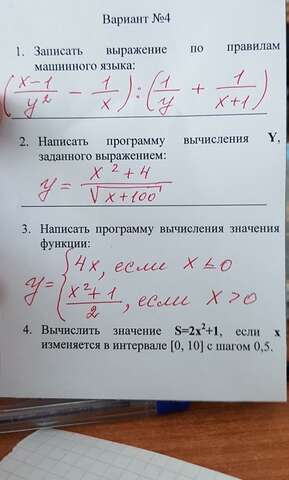 Вариант №4
1. Записать выражение по правилам
машинного языка:
(x-1/y² - 1/x) : (1/y + 1/x+1)
2. Написать программу вычисления Y,
заданного выражением:
y = x²+4/√x+100
3. Написать программу вычисления значения
функции:
y = { 4x, если x ≤ 0
x²+1/2, если x > 0
4. Вычислить значение S=2x²+1, если x
изменяется в интервале [0, 10] с шагом 0,5.